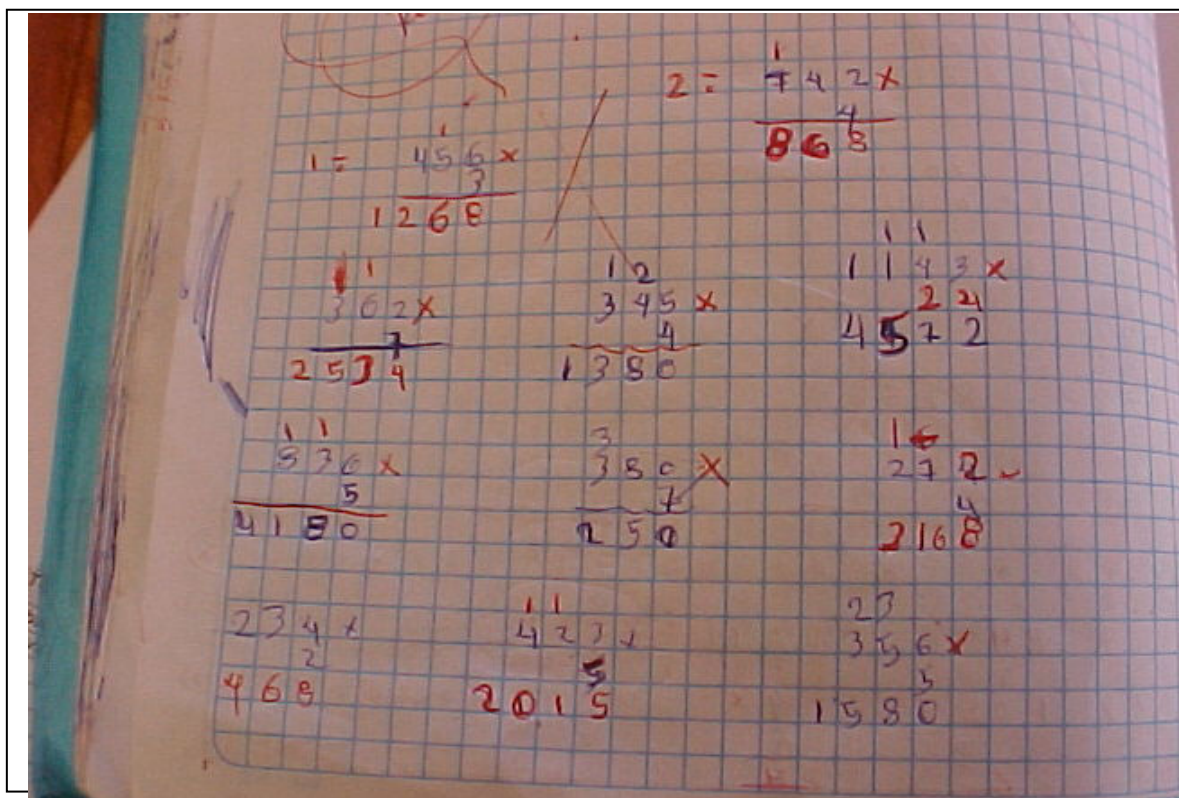 1
2 = 7 4 2 x
4
8 6 8
1
1 = 4 5 6 x
3
1 2 6 8
1
3 6 2 x
7
2 5 3 4
1 2
3 4 5 x
4
1 3 8 0
1 1
1 1 4 3 x
2 4
4 5 7 2
1 1
8 3 6 x
5
4 1 8 0
3
3 8 0 x
7
2 5 0
1
2 7 2
4
2 1 6 8
2 3 4 x
2
4 6 8
1 1
4 2 3 x
5
2 0 1 5
2 3
3 5 6 x
5
1 5 8 0